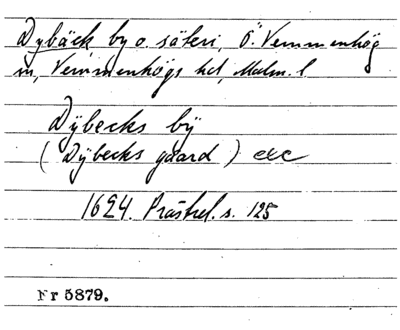 Dybäck by o. säteri, Ö. Vemmenhög
sn, Vemmenhögs hd, Malm. l.
Dÿbecks bÿ
(Dÿbecks gaard) etc
1624. Prästrel. s. 125
Nr 5879.